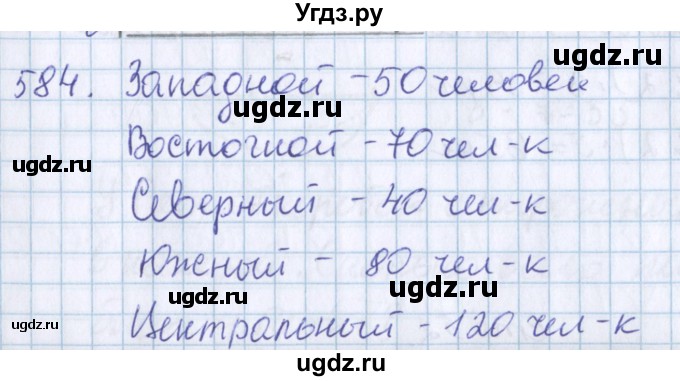 Угдз.ру
584. Западной - 50 человек
ugdz.ru ugdz.ru
Восточной - 70 чел-к
ugdz.ru ugdz.ru
Северный - 40 чел-к
Южный - 80 чел-к
ugdz.ru ugdz.ru
ugdz.ru Центральный - 120 чел-к
ugdz.ru